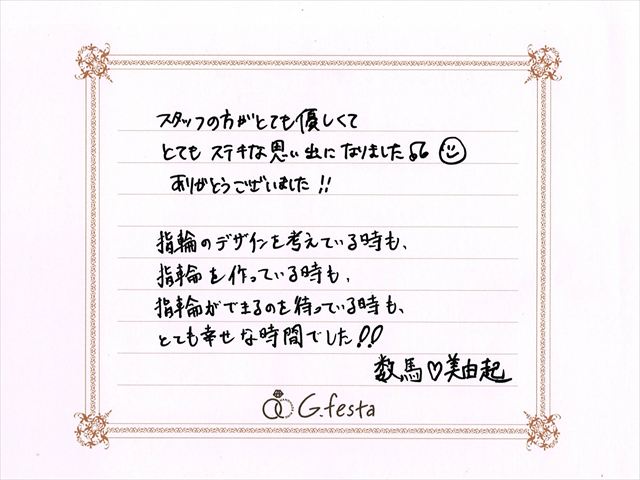 スタッフの方がとても優しくて
とても ステキな思い出に なりました♫ ☺
ありがとうございました!!
指輪のデザインを考えている時も、
指輪を作っている時も、
指輪ができるのを待っている時も、
とても幸せな時間でした!!
数馬♡美由起
G.festa